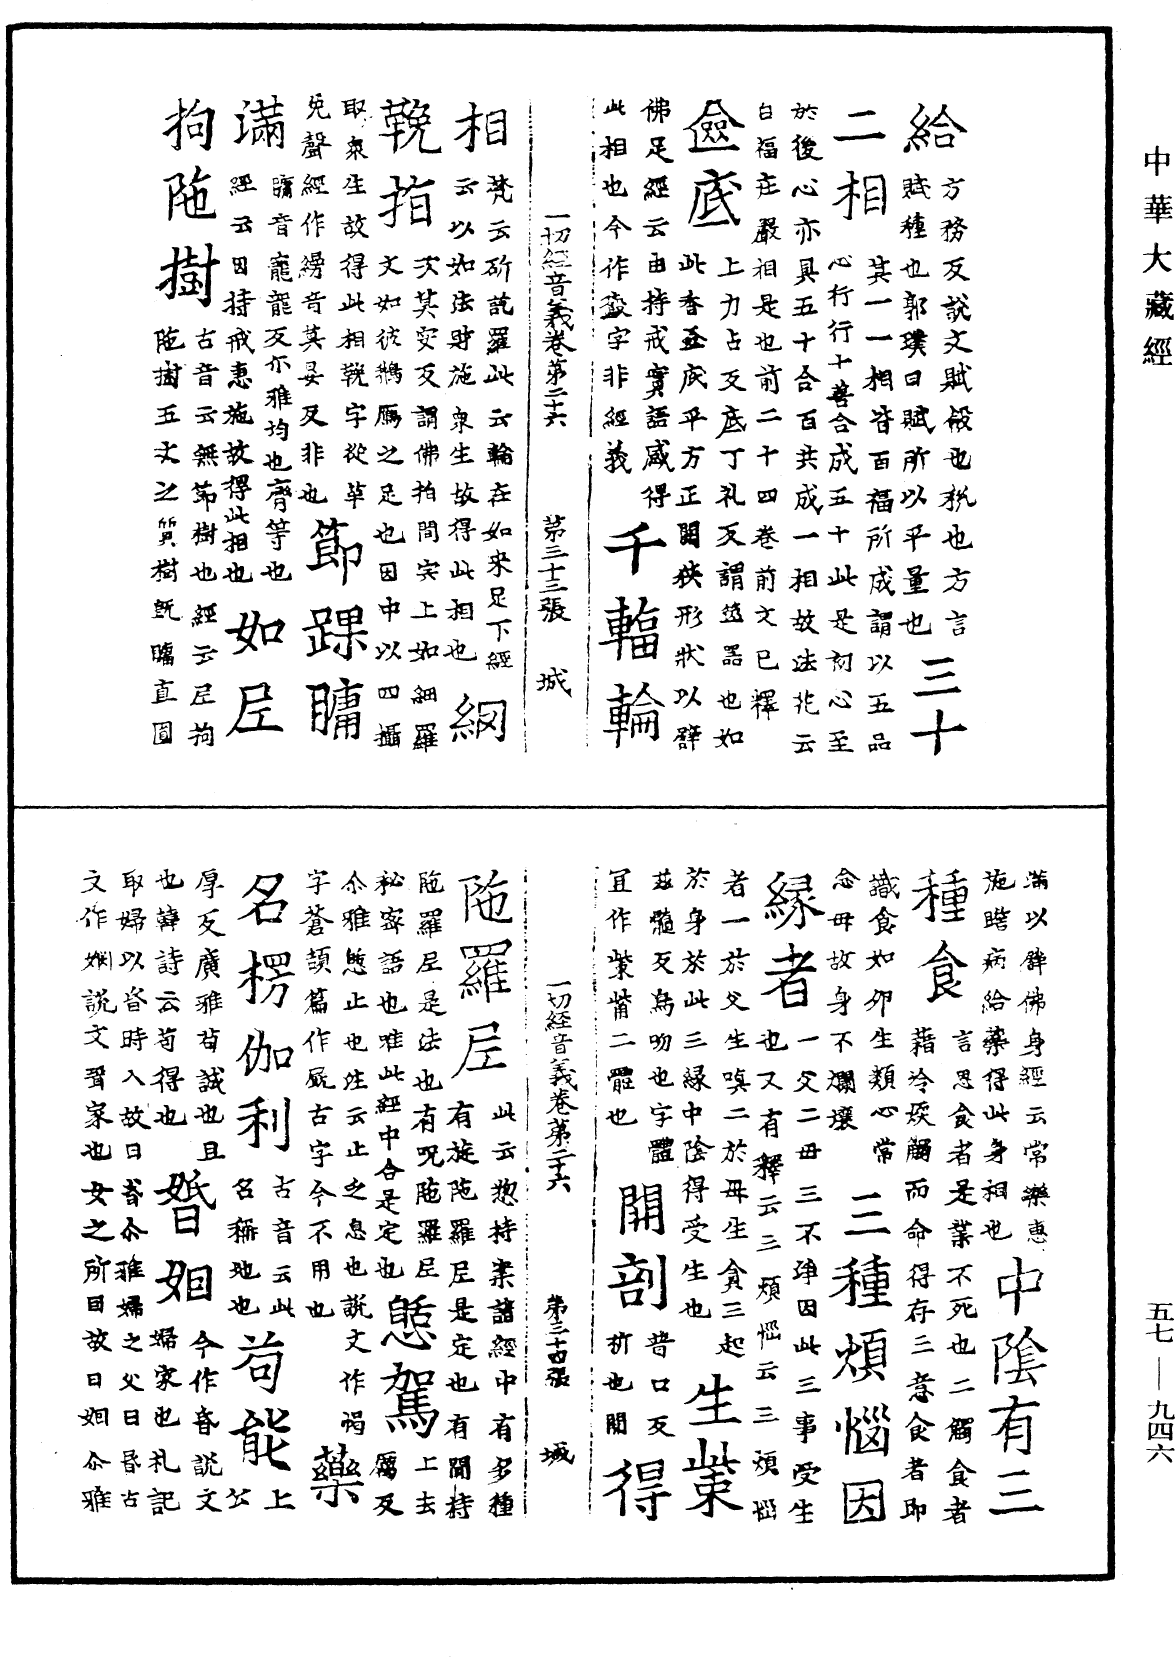 中華大藏經
給方務反說文賦斂也稅也方言
賦種也郭璞曰賦所以平量也三十
二相其一一相皆百福所成謂以五品
心行行十善合成五十此是初心至
於後心亦具五十合百共成一相故法花云
百福莊嚴相是也前二十四卷前文已釋
奩底上力占反底丁礼反謂奩器也如
此香奩底平方正開狹形狀以辟
佛足經云由持戒實語感得
此相也今作奩字非經義千輻輪
一切經音義卷第二十六 第三十三張 城
相梵云斫訖羅此云輪在如來足下經
云以如法財施衆生故得此相也網
鞔指次莫安反謂佛指間安上如細羅
文如彼鵝鴈之足也因中以四攝
取衆生故得此相鞔字從革
免聲經作縵音莫晏反非也節踝𦟛
滿𦟛音寵龍反尒雅均也齊等也
經云因持戒惠施故得此相也如尼
拘陁樹古音云無節樹也經云尼拘
陁樹五丈之質樹旣𦟛直圓
滿以辟佛身經云常樂惠
施瞻病給藥得此身相也中陰有三
種食言思食者是業不死也二觸食者
藉冷煖觸而命得存三意食者即
識食如卵生類心常
念母故身不爛壞三種煩惱因
緣者一父二母三不諍因此三事受生
也又有釋云三煩惱云三煩惱
者一於父生嗔二於母生貪三起
於身於此三緣中陰得受生也生𭪿
茲髓反鳥吻也字體
宜作𭪿觜二體也開剖普口反析也開得
一切經音義卷第二十六 第三十四張 城
陁羅尼此云惣持案諸經中有多種
有旋陁羅尼是定也有聞持
陁羅尼是法也有呪陁羅尼
祕密語也唯此經中合是定也憩駕上去厲反
尒雅憩止也注云止之息也說文作愒
字蒼頡篇作屆古字今不用也藥
名楞伽利古音云此
名稱地也苟能上公
厚反廣雅苟誠也且
也韓詩云苟得也婚姻今作昏說文
婦家也礼記
取婦以昏時入故曰昏尒雅婦之父曰昏古
文作婣說文聟家也女之所因故曰姻尒雅
五七—九四六